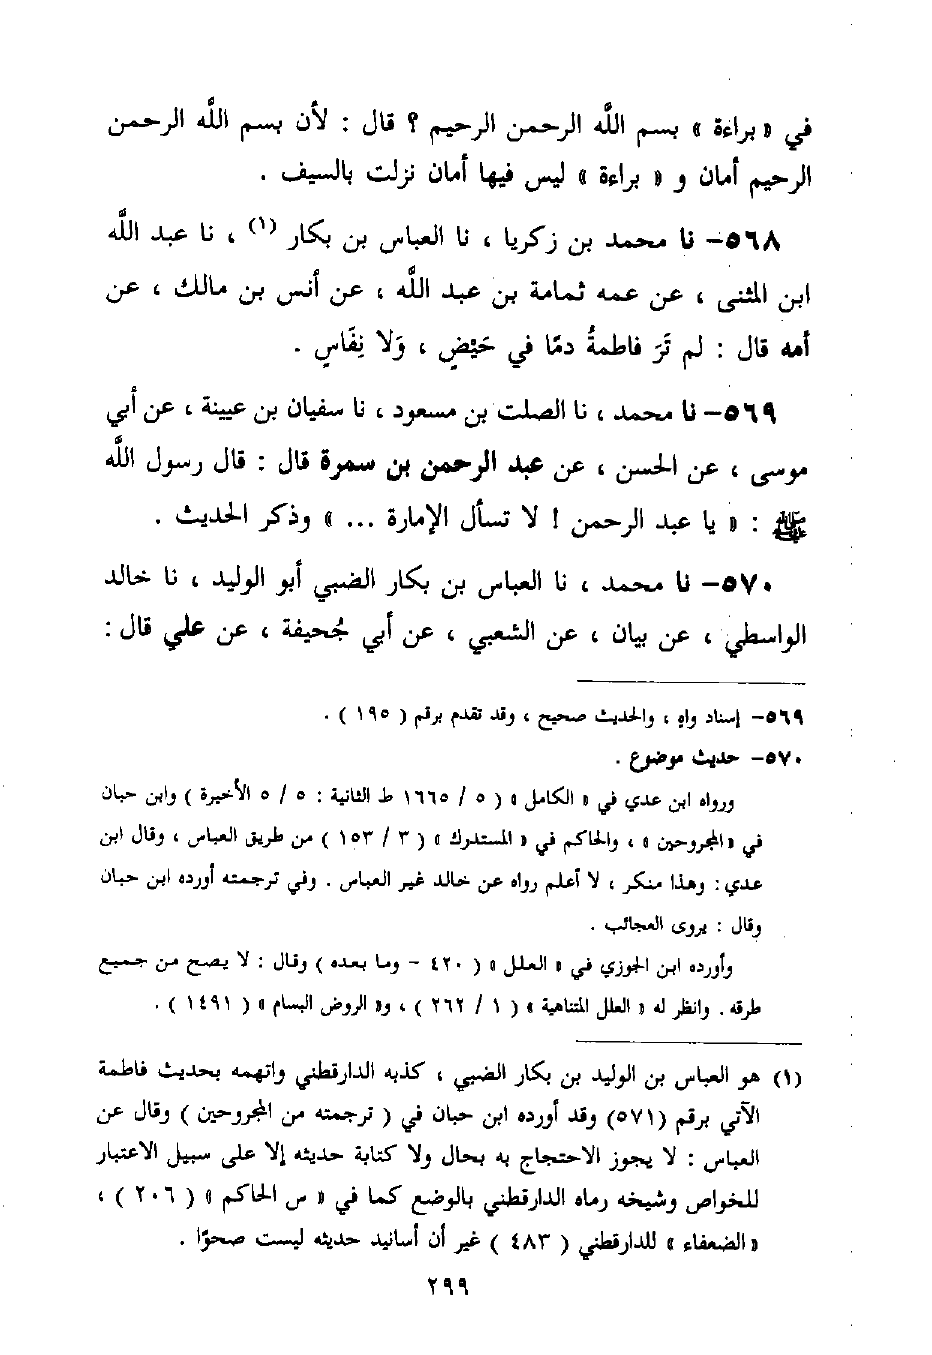 في « براءة » بسم اللَّه الرحمن الرحيم ؟ قال : لأن بسم اللَّه الرحمن
الرحيم أمان و « براءة » ليس فيها أمان نزلت بالسيف .
٥٦٨- نا محمد بن زكريا ، نا العباس بن بكار (١) ، نا عبد اللَّه
ابن المثنى ، عن عمه ثمامة بن عبد اللَّه ، عن أنس بن مالك ، عن
أمه قال : لم تَرَ فاطمةُ دمًا في حَيْضٍ ، وَلا نِفَاسٍ .
٥٦٩- نا محمد ، نا الصلت بن مسعود ، نا سفيان بن عيينة ، عن أبي
موسى ، عن الحسن ، عن عبد الرحمن بن سمرة قال : قال رسول اللَّه
ﷺ : « يا عبد الرحمن ! لا تسأل الإمارة ... » وذكر الحديث .
٥٧٠- نا محمد ، نا العباس بن بكار الضبي أبو الوليد ، نا خالد
الواسطي ، عن بيان ، عن الشعبي ، عن أبي جُحيفة ، عن علي قال :
٥٦٩- إسناد واهٍ ، والحديث صحيح ، وقد تقدم برقم ( ١٩٥ ) .
٥٧٠- حديث موضوع .
ورواه ابن عدي في « الكامل » ( ٥ / ١٦٦٥ ط الثانية : ٥ / ٥ الأخيرة ) وابن حبان
في « المجروحين » ، والحاكم في « المستدرك » ( ٣ / ١٥٣ ) من طريق العباس ، وقال ابن
عدي : وهذا منكر ، لا أعلم رواه عن خالد غير العباس . وفي ترجمته أورده ابن حبان
وقال : يروى العجائب .
وأورده ابن الجوزي في « العلل » ( ٤٢٠ - وما بعده ) وقال : لا يصح من جميع
طرقه . وانظر له « العلل المتناهية » ( ١ / ٢٦٢ ) ، و« الروض البسام » ( ١٤٩١ ) .
(١) هو العباس بن الوليد بن بكار الضبي ، كذبه الدارقطني واتهمه بحديث فاطمة
الآتي برقم (٥٧١) وقد أورده ابن حبان في ( ترجمته من المجروحين ) وقال عن
العباس : لا يجوز الاحتجاج به بحال ولا كتابة حديثه إلا على سبيل الاعتبار
للخواص وشيخه رماه الدارقطني بالوضع كما في « س الحاكم » ( ٢٠٦ ) ،
« الضعفاء » للدارقطني ( ٤٨٣ ) غير أن أسانيد حديثه ليست صحوًا .
٢٩٩